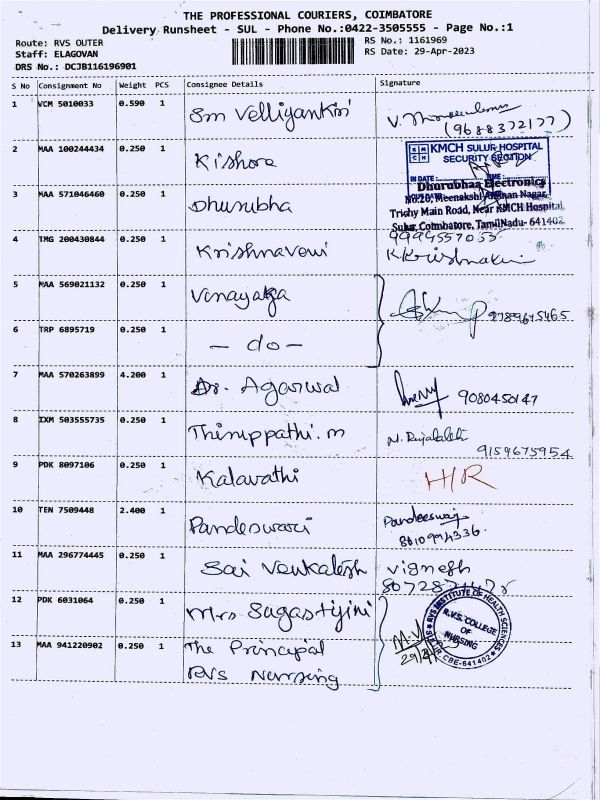 THE PROFESSIONAL COURIERS, COIMBATORE
Delivery Runsheet - SUL - Phone No.:0422-3505555 - Page No.:1
Route: RVS OUTER
Staff: ELAGOVAN
DRS No.: DCJB116196901
RS No.: 1161969
RS Date: 29-Apr-2023
S No Consignment No Weight PCS Consignee Details Signature
1 VCM 5010033 0.590 1 Sm Velliyankiri
(9688372177)
2 MAA 100244434 0.250 1 Kishore
KMCH SULUR HOSPITAL
SECURITY SECTION
IN DATE: TIME:
3 MAA 571046460 0.250 1 Dhurubha
Dhurubhaa Electronics
No.20, Meenakshi Nagar,
Trichy Main Road, Near KMCH Hospital
Sulur, Coimbatore, TamilNadu- 641402
4 TMG 200430844 0.250 1 Krishnaveni
5 MAA 569021132 0.250 1 Vinayaga
9789675465
6 TRP 6895719 0.250 1 - do -
7 MAA 570263899 4.200 1 Dr. Agarwal
9080450147
8 IXM 503555735 0.250 1 Thiruppathi. m
9159675954
9 PDK 8097106 0.250 1 Kalavathi H/R
10 TEN 7509448 2.400 1 Pandeswari Pandeeswari
8610994336.
11 MAA 296774445 0.250 1 Sai Venkatesh Vignesh
12 PDK 6031064 0.250 1 Mrs Sagastijini
RVS INSTITUTE OF HEALTH SCIENCES
R.V.S. COLLEGE
OF
NURSING
CBE-641402
13 MAA 941220902 0.250 1 The Principal
RVS Nursing